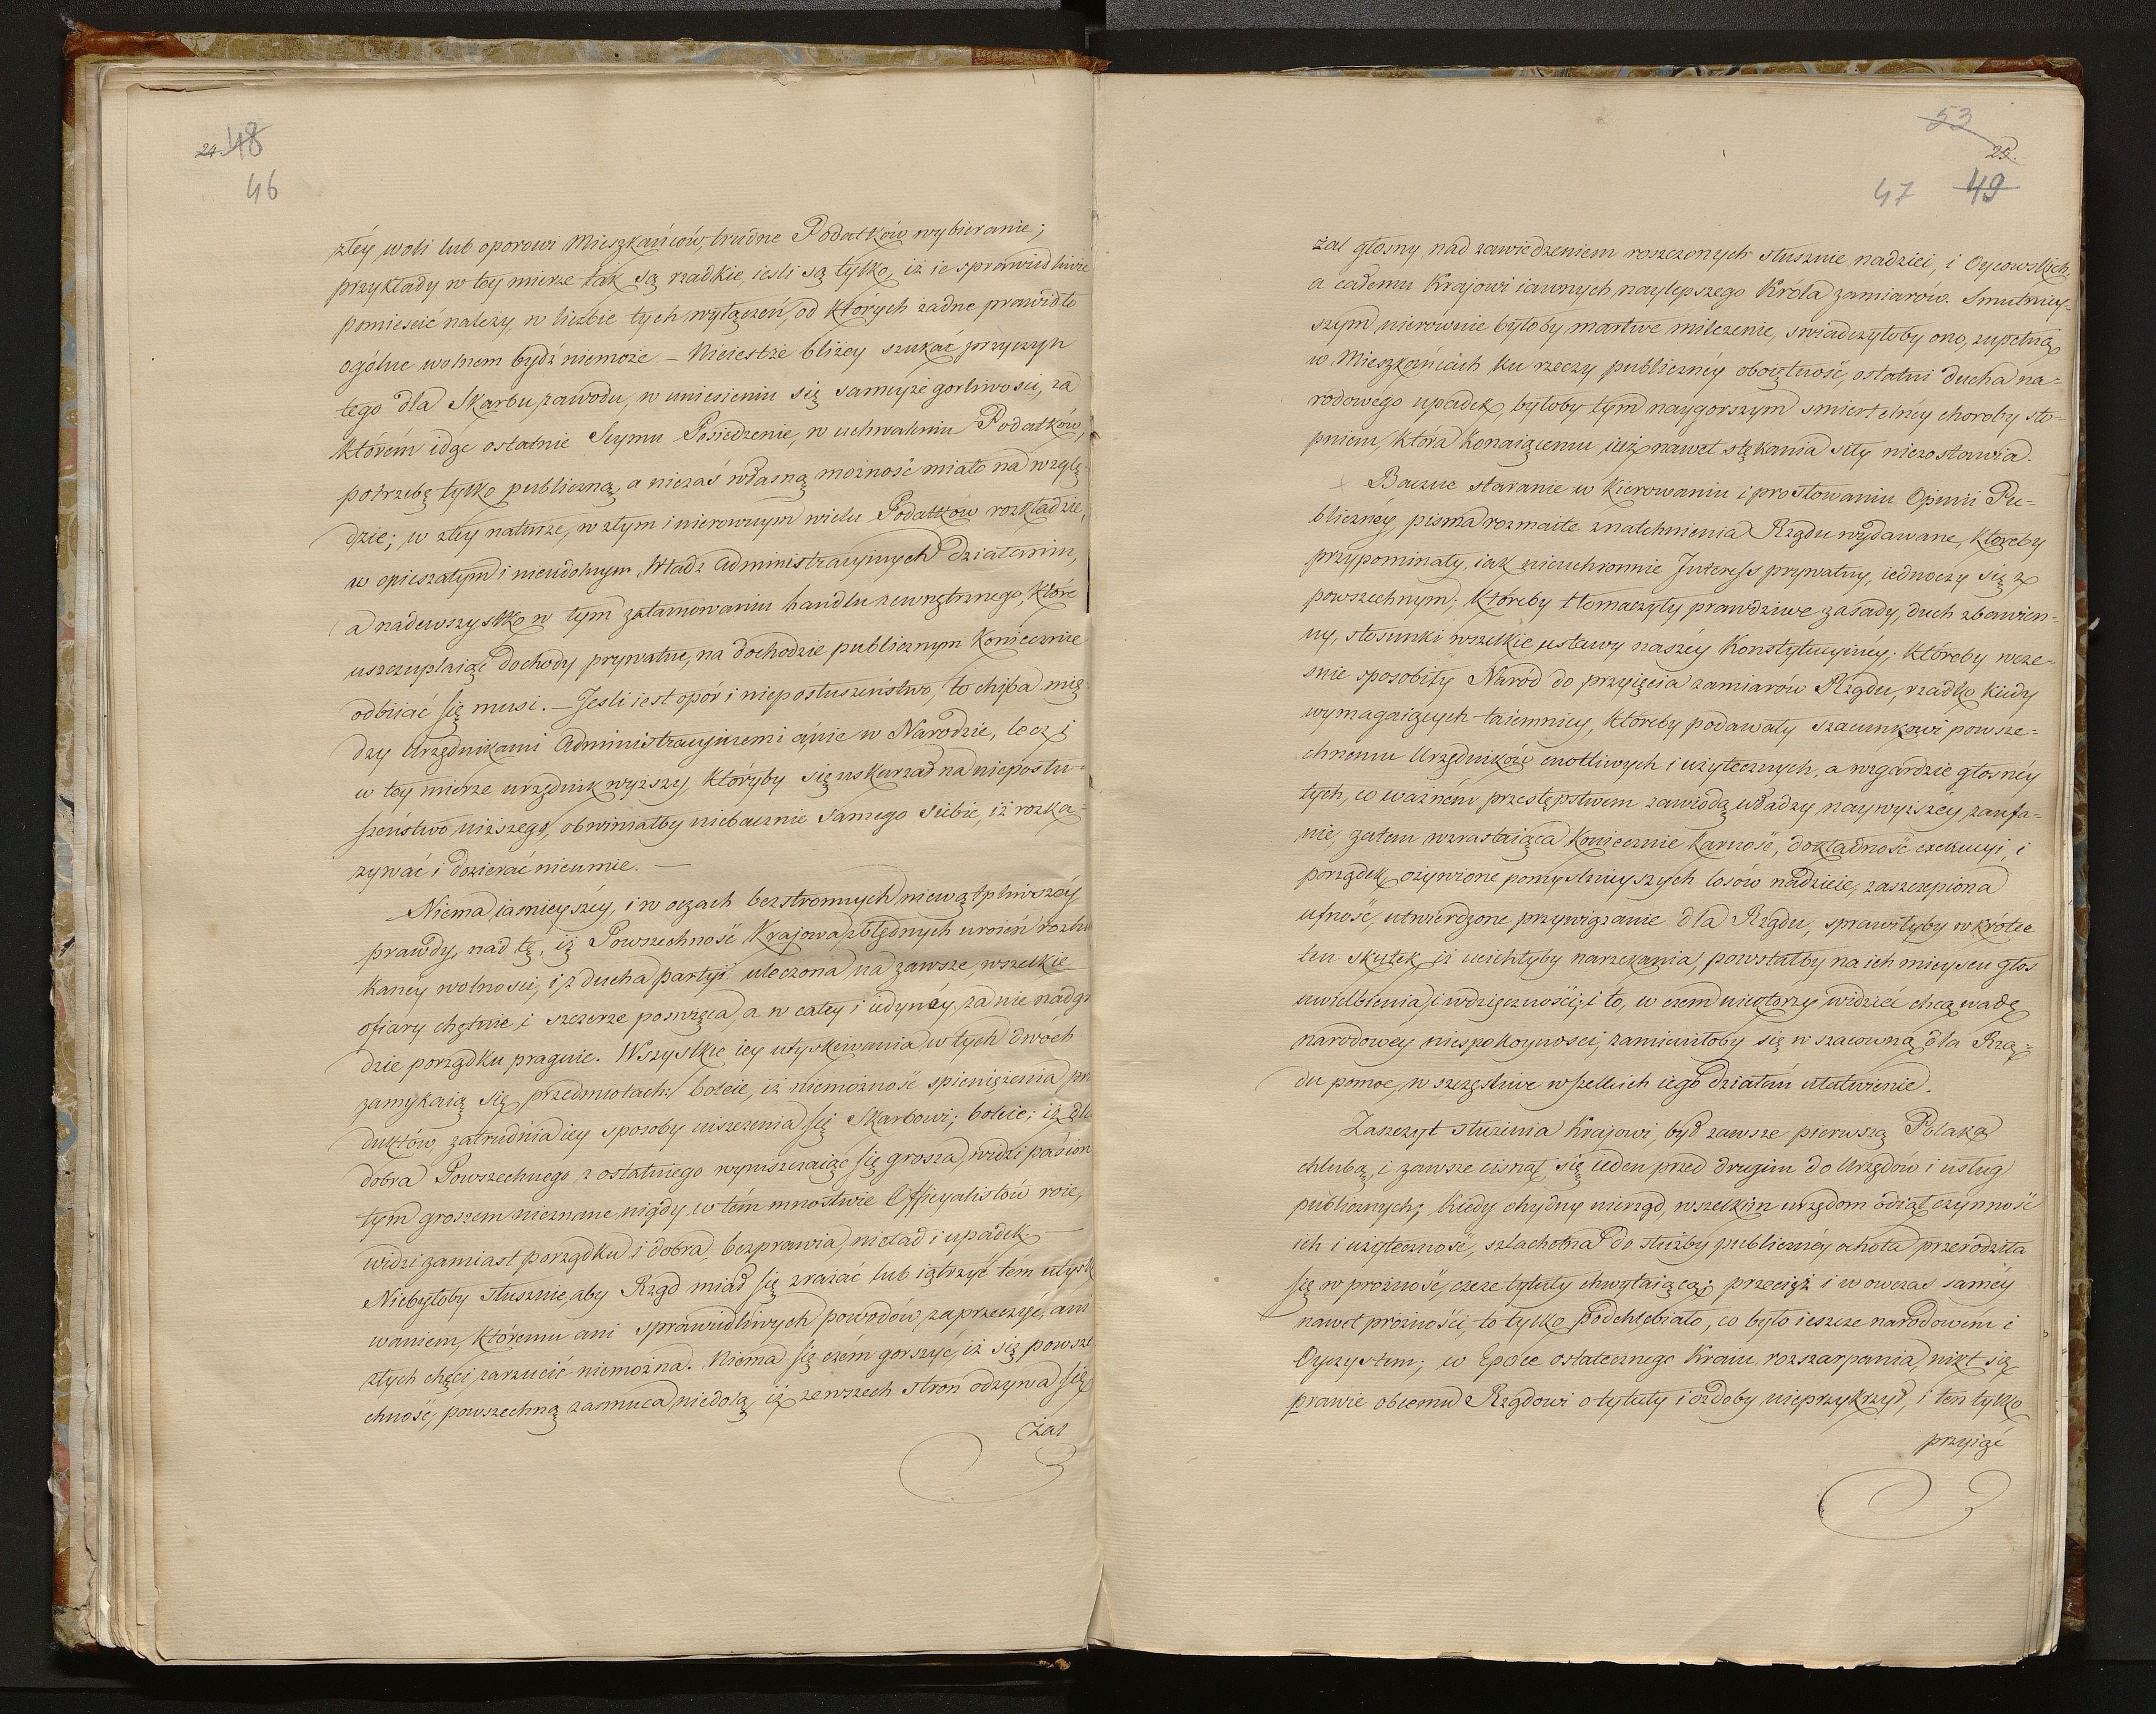 24. 48
46
złey woli lub oporowi Mieszkańców, trudne Podatków wybieranie;
przykłady w tey mierze tak są rzadkie, iesli są tylko, iż ie sprawiedliwie
pomieścić należy w liczbie tych wyłączeń, od których żadne prawidło
ogólne wolnem bydź niemoże. — Nieiestże bliżey szukać przyczyn
tego dla Skarbu zawodu, w uniesieniu się samejże gorliwosci, za
którém idąc ostatnie Seymu Posiedzenie, w uchwaleniu Podatków,
potrzebę tylko publiczną, a niezaś własną możność miało na wzglę-
dzie; w złey naturze, w złym i nierownym wielu Podatków rozkładzie,
w opieszałym i nieudolnym Władz Administracyinych działaniu,
a nadewszystko w tym zatamowaniu handlu zewnętrznego, które
uszczuplaiąc dochody prywatne, na dochodzie publicznym koniecznie
odbijać się musi. — Jesli iest opór i nieposłuszeństwo, to chiba mię-
dzy Urzędnikami Administracyinemi a nie w Narodzie, lecz i
w tey mierze urzędnik wyższy, któryby się uskarżał na nieposłu-
szeństwo niższego, obwiniałby niebacznie samego siebie, iż rozka-
zywać i dozierać nieumie. —
Niema iasnieyszéy, i w oczach bezstronnych niewątpliwszéy
prawdy, nad tę, iż Powszechność Krajowa, z błędnych uroień
kaney wolnosci, i z ducha partyi uleczona na zawsze, wszelkie
ofiary chętnie i szczerze poswięca, a w całey i iedynéy, za nie
dzie porządku pragnie. Wszystkie iey utyskiwania w tych dwóch
zamykaią się przedmiotach: boleie, iż niemożność spieniężenia
duktów, zatrudnia iey sposoby uiszczenia się Skarbowi; boleie; iż dla
dobra Powszechnego z ostatniego wyniszczaiąc się grosza, widzi
tym groszem nieznane nigdy w tém mnostwie Officyalistów roie,
widzi zamiast porządku i dobra, bezprawia, nieład i upadek. —
Niebyłoby słusznie, aby Rząd miał się zrażać lub iątrzyć tém utysk
waniem, któremu ani sprawiedliwych powodów zaprzeczyć, ani
złych chęci zarzucić niemożna. Niema się czém gorszyć, iż się powsze
chność, powszechną zasmuca niedolą, iż ze wszech stron odzywa się
żal
53
25.
47 49
żal głosny nad zawiedzeniem roszczonych słusznie nadziei, i Oycowskich,
a całemu Krajowi iawnych, naylepszego Króla zamiarów. Smutniey-
szym nierównie byłoby martwe milczenie, swiadczyłoby ono, zupełną
w Mieszkańcach ku rzeczy publicznéy oboiętność, ostatni ducha na-
rodowego upadek, byłoby tym naygorszym smiertelnéy choroby sto-
pniem, która konaiącemu iuż nawet stękania siły niezostawia.
Baczne staranie w kierowaniu i prostowaniu Opinii Pu-
blicznéy, pisma rozmaite z natchnienia Rządu wydawane, któreby
przypominały, iak nieuchronnie Interess prywatny, iednoczy się z
powszechnym; któreby tłomaczyły prawdziwe zasady, duch zbawien-
ny, stosunki wszelkie ustawy naszéy Konstytucyinéy; któreby wcze-
snie sposobiły Naród do przyięcia zamiarów Rządu, rzadko kiedy
wymagaiących taiemnicy, któreby podawały szacunkowi powsze-
chnemu Urzędników cnotliwych i użytecznych, a wzgardzie głosnéy
tych, co ważném przestępstwem zawiodą władzy naywyższéy zaufa-
nie, zatem wzrastaiąca koniecznie karność, dokładność exekucyi, i
porządek, ożywione pomyslnieyszych losów nadzieie, zaszczepiona
ufność, utwierdzone przywiązanie dla Rządu, sprawiłyby wkrótce
ten skutek, iż ucichłyby narzekania, powstałby na ich mieyscu głos
uwielbienia i wdzięczności; i to, w czem niektorzy widzieć chcą wadę
narodowéy niespokoynosci, zamieniłoby się w szacowną dla Rzą-
du pomoc, w szczęsliwe wszelkich iego działań ułatwienie.
Zaszczyt służenia Krajowi, był zawsze pierwszą Polaka
chlubą, i zawsze cisnął się ieden przed drugim do Urzędów i usług
publicznych; kiedy ohydny nierząd, wszelkim urzędom odiął czynność
ich i użyteczność, szlachetna do służby publicznéy ochota przerodziła
się w prożność, czcze tytuły chwytaiącą; przecięż i wowczas saméy
nawet próżności, to tylko podchlebiało, co było ieszcze narodowém i
Oyczystem; w Epoce ostatecznego Kraiu rozszarpania, nikt się
prawie obcemu Rządowi o tytuły i ozdoby nieprzykrzył, i ten tylko
przyiąć